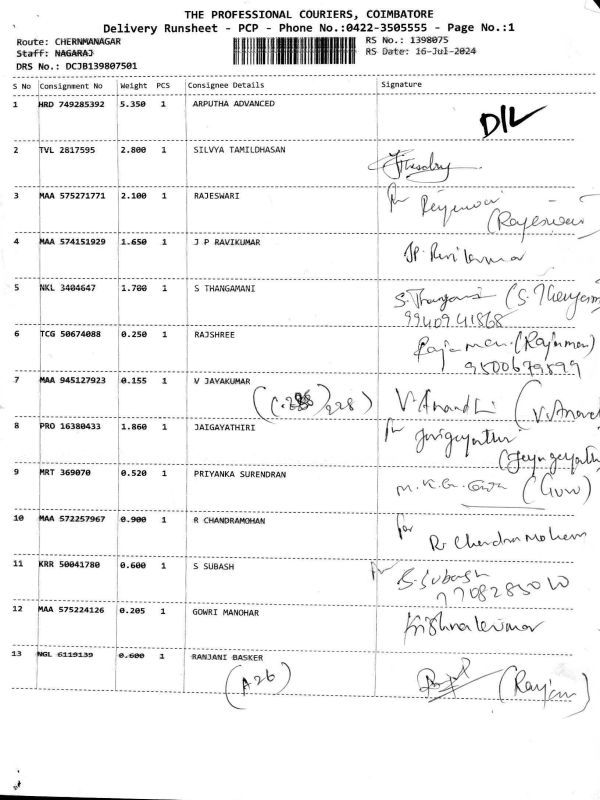 THE PROFESSIONAL COURIERS, COIMBATORE
Delivery Runsheet - PCP - Phone No.:0422-3505555 - Page No.:1
Route: CHERNMANAGAR RS No.: 1398075
Staff: NAGARAJ RS Date: 16-Jul-2024
DRS No.: DCJB139807501
S No Consignment No Weight PCS Consignee Details Signature
1 HRD 749285392 5.350 1 ARPUTHA ADVANCED
D/L
2 TVL 2817595 2.800 1 SILVYA TAMILDHASAN
3 MAA 575271771 2.100 1 RAJESWARI
(Rajeswari)
4 MAA 574151929 1.650 1 J P RAVIKUMAR
JP. Ravikumar
5 NKL 3404647 1.700 1 S THANGAMANI
S. Thangamani
9940941868
6 TCG 50674088 0.250 1 RAJSHREE
9500679899
7 MAA 945127923 0.155 1 V JAYAKUMAR
228 V. Anandh
8 PRO 16380433 1.860 1 JAIGAYATHIRI
9 MRT 369070 0.520 1 PRIYANKA SURENDRAN
(Guru)
10 MAA 572257967 0.900 1 R CHANDRAMOHAN
for
R. Chandra Mohan
11 KRR 50041780 0.600 1 S SUBASH
S. Subash
12 MAA 575224126 0.205 1 GOWRI MANOHAR
Krishnakumar
13 NGL 6119139 0.600 1 RANJANI BASKER
(A26) (Ranjani)